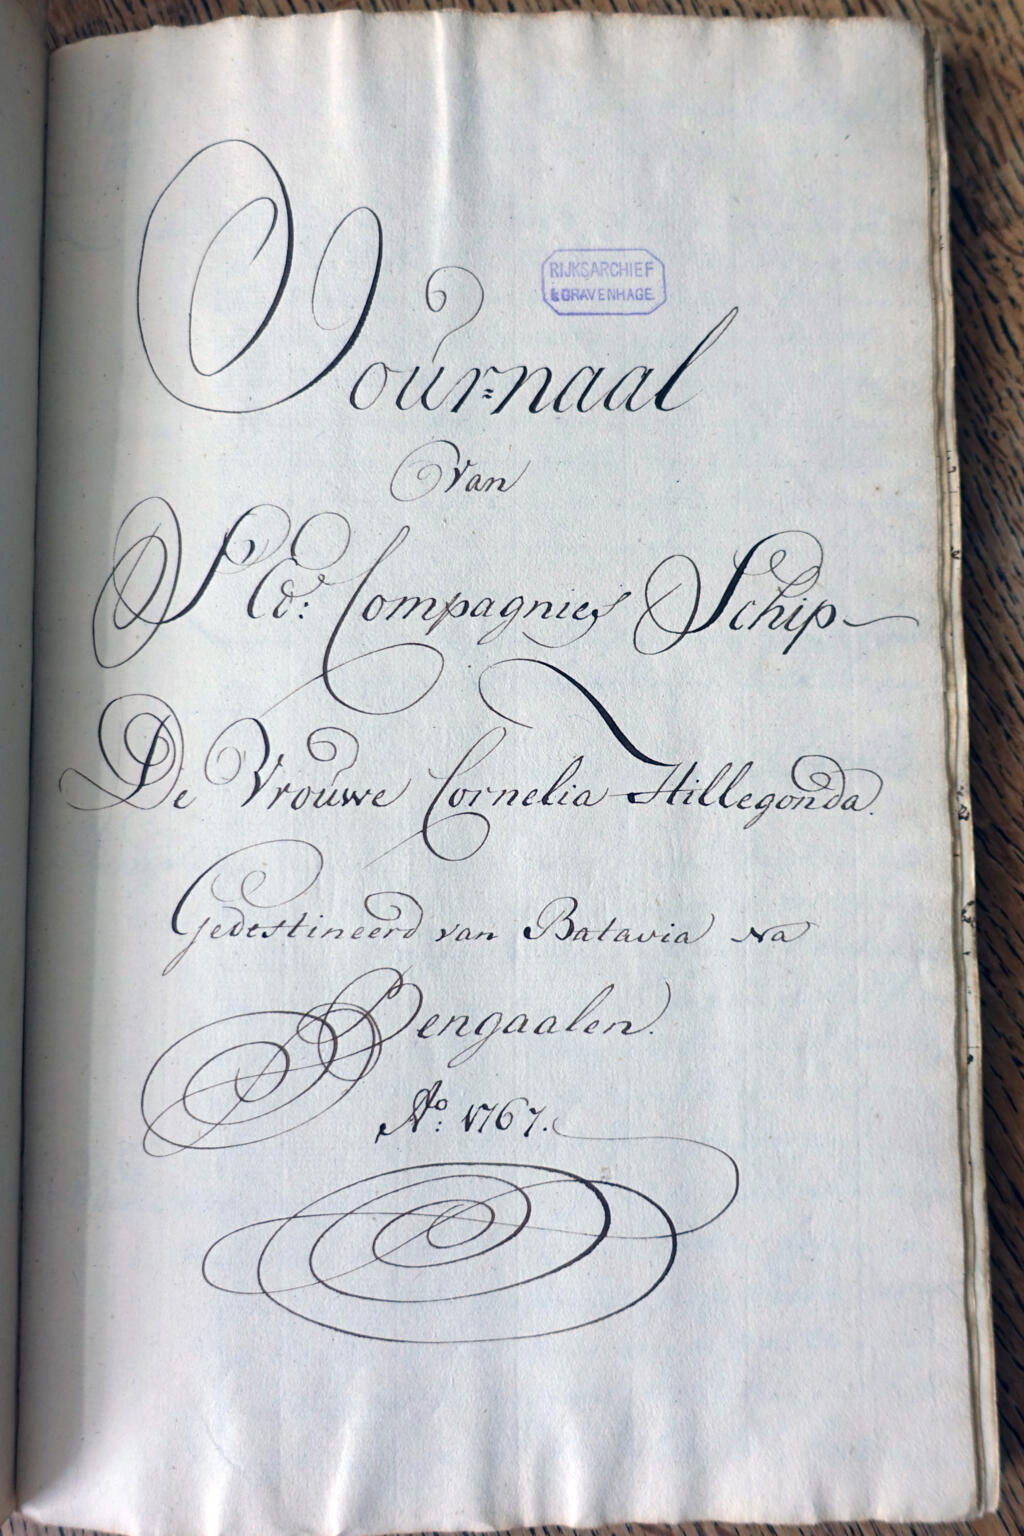 RIJKSARCHIEF
'sGRAVENHAGE.
Journaal
Van
S' Ed: Compagnies Schip
De Vrouwe Cornelia Hillegonda.
Gedestineerd van Batavia na
Bengaalen.
Ao: 1767.